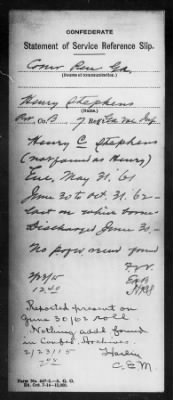 CONFEDERATE
Statement of Service Reference Slip.
Comr Pen Ga.
(Source of communication.)
Henry Stephens
(Name.)
Pvt. Co. B 7 Reg't
Henry C Stephens
(not found as Henry)
Enl. May 31, '61
June 30 to Oct. 31, '62 -
last on which borne
Discharged June 30 -
No papers found
2/23/15
12 40
Reported present on
June 30/62 roll.
Nothing addl found
in Confed. Archives.
2/23/15
C E M
Form No. 607-2—A. G. O.